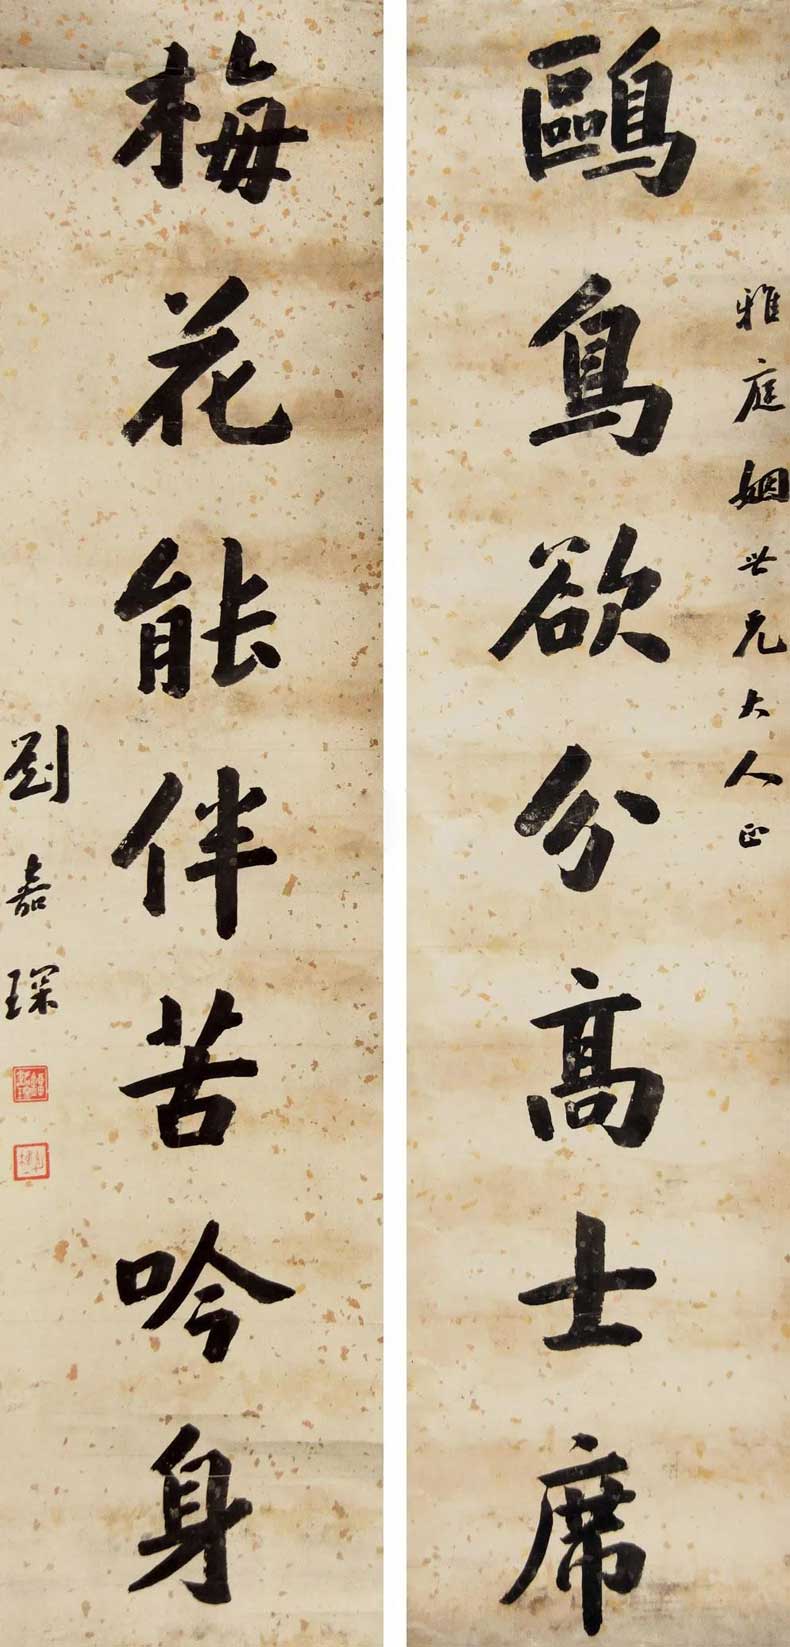 鷗鳥欲分高士席
雅庭姻世兄大人正
梅花能伴苦吟身
劉嘉琛